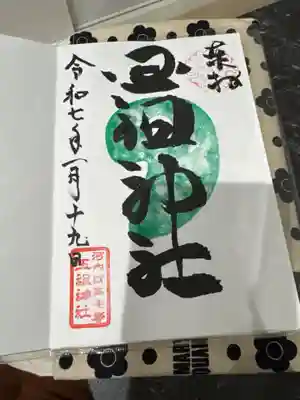 奉拝
玉祖神社
令和七年一月十九日
河内
玉祖神社
MARY
QUANT